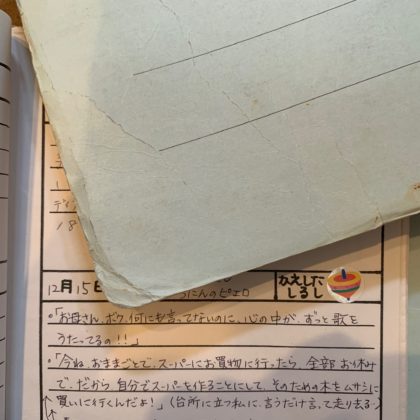 ディ
18
12月15日
のピエロ
かえした
しるし
・「お母さん、ボク、何にも言ってないのに、心の中が、ずっと歌を
うたってるの!!」
・「今ね、おままごとで、スーパーにお買物に行ったら、全部お休み
で、だから自分でスーパーを作ることにして、そのための木をムサシに
買いに行くんだよ!」(台所に立つ私に、言うだけ言って走り去る)